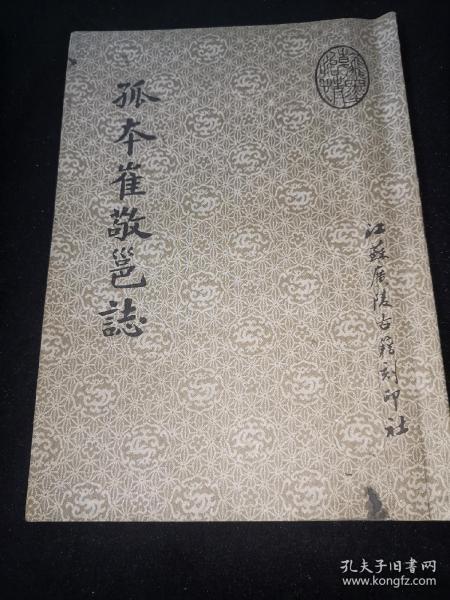 孤本崔敬邕誌
江蘇廣陵古籍刻印社
孔夫子旧书网
www.kongfz.com